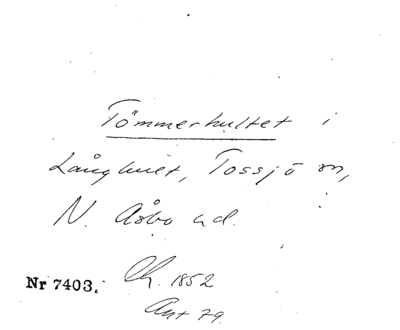 Tömmerhultet i
Långhult, Tossjö sn,
N. Åsbo hd.
Nr 7403. Ch. 1852
Ant 79.